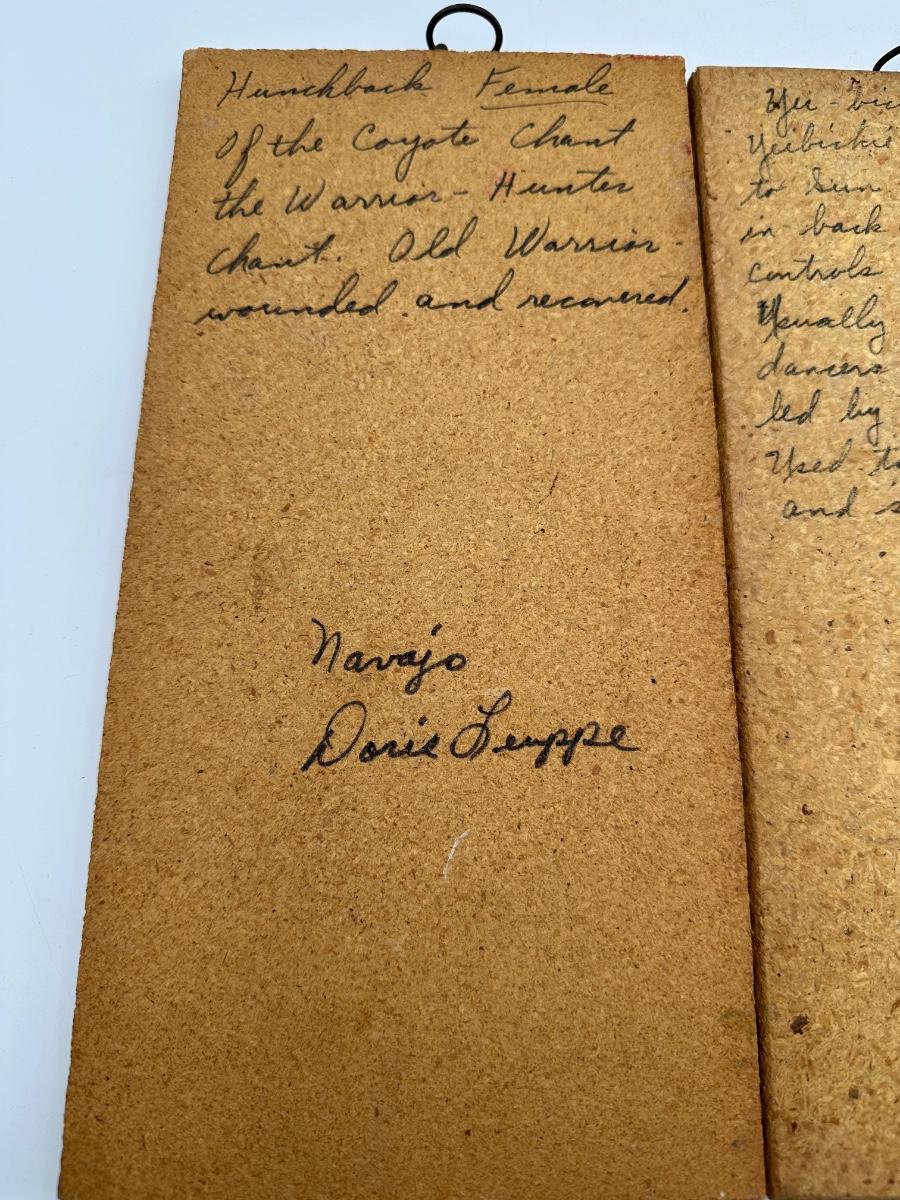 Hunchback Female
Of the Coyote Chant
the Warrior - Hunter
Chant. Old Warrior -
wounded and recovered.
Navajo
Doris Leuppe
Yei - bic
Yeibichie
to Sun
in back
controls
Usually
dancers
led by
Used to
and s